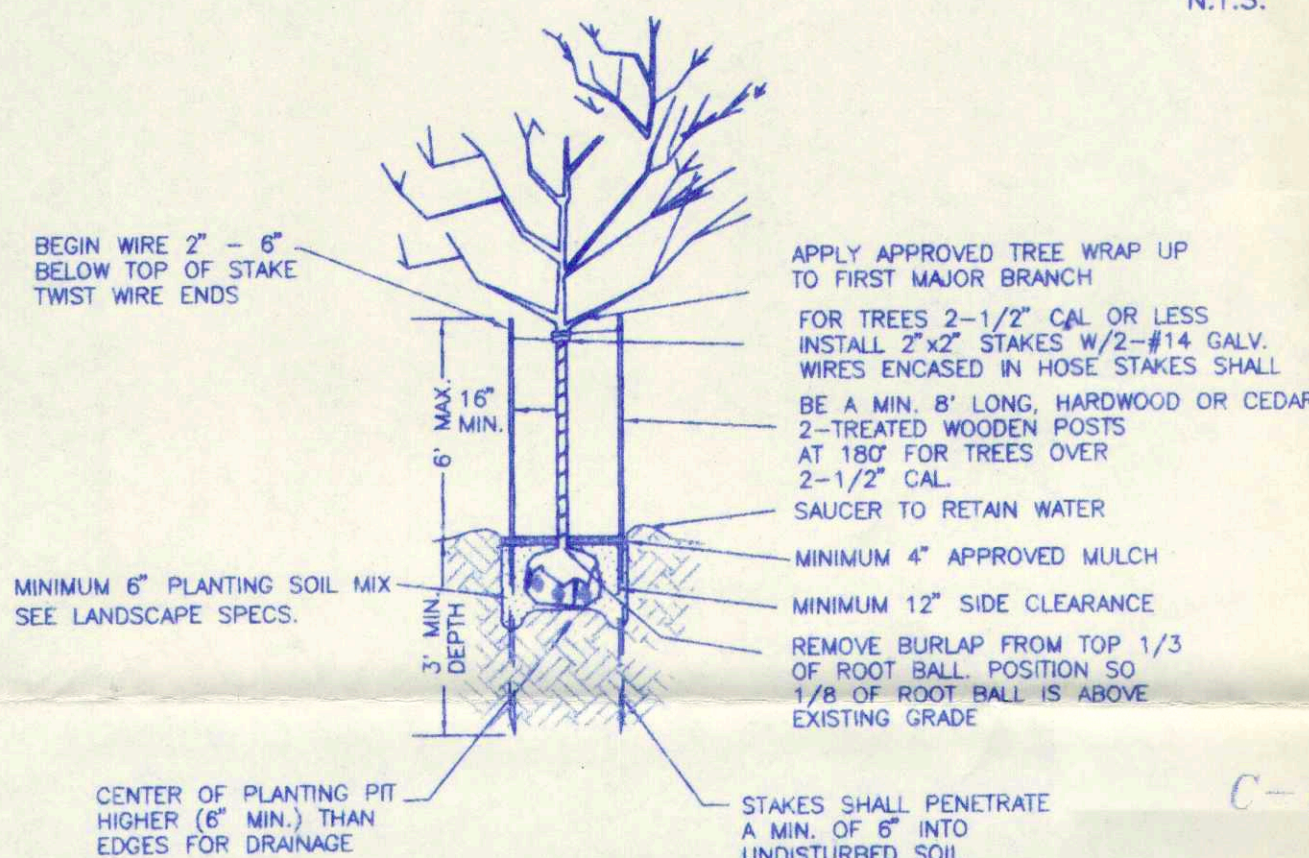 N.T.S.
BEGIN WIRE 2" - 6"
BELOW TOP OF STAKE
TWIST WIRE ENDS
6' MAX.
16"
MIN.
3' MIN.
DEPTH
MINIMUM 6" PLANTING SOIL MIX
SEE LANDSCAPE SPECS.
CENTER OF PLANTING PIT
HIGHER (6" MIN.) THAN
EDGES FOR DRAINAGE
APPLY APPROVED TREE WRAP UP
TO FIRST MAJOR BRANCH
FOR TREES 2-1/2" CAL OR LESS
INSTALL 2"x2" STAKES W/2-#14 GALV.
WIRES ENCASED IN HOSE STAKES SHALL
BE A MIN. 8' LONG, HARDWOOD OR CEDAR
2-TREATED WOODEN POSTS
AT 180° FOR TREES OVER
2-1/2" CAL.
SAUCER TO RETAIN WATER
MINIMUM 4" APPROVED MULCH
MINIMUM 12" SIDE CLEARANCE
REMOVE BURLAP FROM TOP 1/3
OF ROOT BALL. POSITION SO
1/8 OF ROOT BALL IS ABOVE
EXISTING GRADE
STAKES SHALL PENETRATE
A MIN. OF 6" INTO
UNDISTURBED SOIL
C-